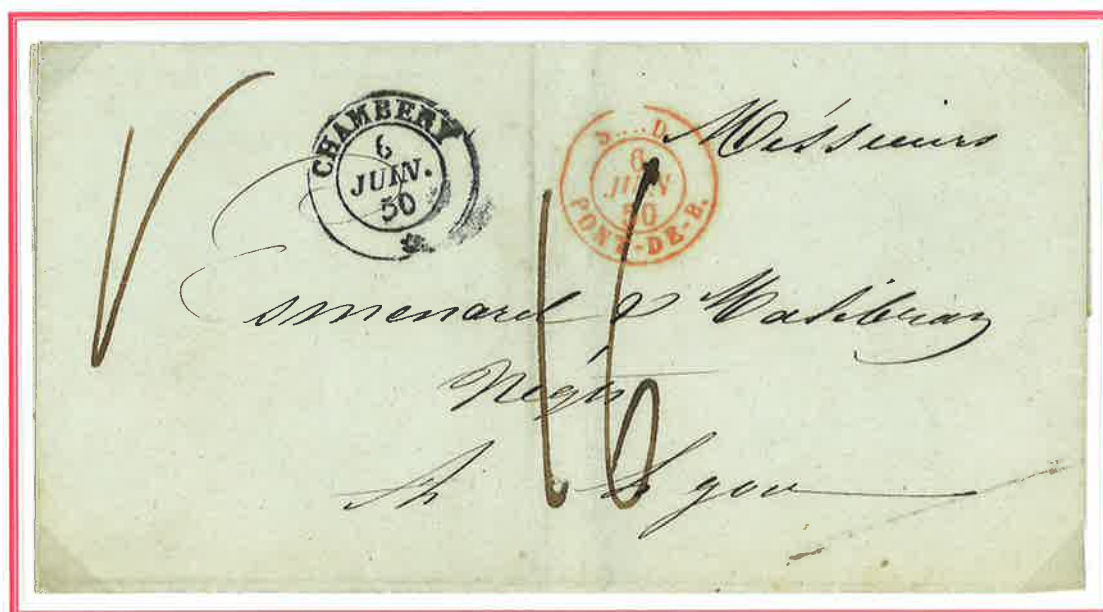 CHAMBERY
6
JUIN.
50
S....D.
6
JUIN
50
PONT-DE-B.
Messieurs
Esmenard &
Négts
16
à Lyon